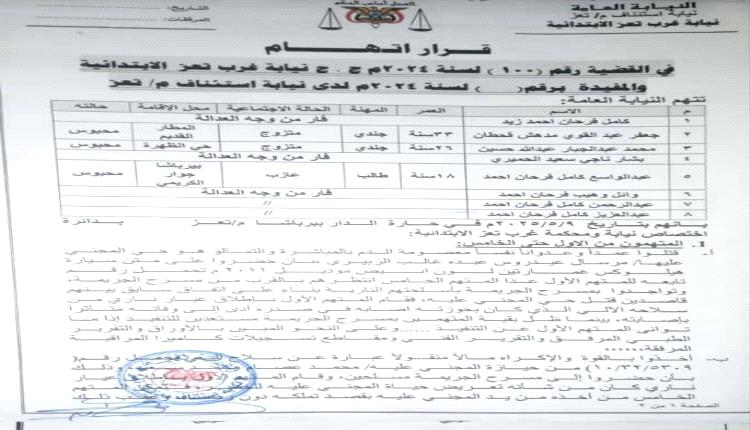 النيابة العامة
نيابة استئناف م/ تعز
نيابة غرب تعز الابتدائية
العدل أساس الحكم
التاريخ:
المرفقات:
قرار اتهام
في القضية رقم (١٠٠) لسنة ٢٠٢٤م ج.ج نيابة غرب تعز الابتدائية
والمقيدة برقم ( ) لسنة ٢٠٢٤م لدى نيابة استئناف م/ تعز
تتهم النيابة العامة:
م الاسم العمر المهنة الحالة الاجتماعية محل الإقامة حالته
١ كامل فرحان احمد زيد فار من وجه العدالة
٢ جعفر عبد القوي مدهش قحطان ٣٣سنة جندي متزوج المطار القديم محبوس
٣ محمد عبدالجبار عبدالله حسين ٢٦سنة جندي متزوج حي الظهرة محبوس
٤ بشار ناجي سعيد الحميري فار من وجه العدالة
٥ عبدالواسع كامل فرحان احمد ١٨سنة طالب عازب بيرباشا جوار الكريمي محبوس
٦ وائل وهيب فرحان احمد فار من وجه العدالة
٧ عبدالرحمن كامل فرحان احمد //
٨ عبدالعزيز كامل فرحان احمد //
بانهم بتاريخ ٢٠٢٥/٥/٩م في حارة الدار بيرباشا م/تعز بدائرة
اختصاص نيابة ومحكمة غرب تعز الابتدائية:
1. المتهمون من الاول حتى الخامس:
أ- قتلوا عمداً وعدواناً نفساً معصومة الدم بالمباشرة والتمالؤ هو حي المجني
عليه/ مرسال عيدروس عبده غالب الزبيري بان حضروا على متن سيارة
هيلوكس غمارتين لون ابيض موديل ٢٠١١م تحمل رقم
تابعه للمتهم الأول عدا المتهم الخامس انتظرهم بالقرب من مسرح الجريمة،
وتواجدوا بمسرح الجريمة بأسلحتهم النارية بناء على اتفاق سابق بينهم
قاصدين قتل حي المجني عليه، فقام المتهم الأول بإطلاق عيار ناري من
سلاحه الآلي الذي كان بحوزته اصابه في صدره أدى إلى وفاته متأثرا
بإصابته، بينما ظل بقية المتهمين بمسرح الجريمة مستعدين للتنفيذ إذا ما
توانى المتهم الأول عن التنفيذ .....وعلى النحو المبين بالاوراق والتقرير
الطبي المرفق والتقرير الفني ومقاطع تسجيلات كاميرا المراقبة
المرفقة.....
ب- أخذوا بالقوة والإكراه مالاً منقولاً عبارة عن سلاح رقم(
١٠/٣٢/٥٣٠٩) من حيازة المجني عليه/ محمد وذلك
بان حضروا إلى مسرح الجريمة مسلحين، وقام عيار
ناري كان من شانه تعريض حياة المجني عليه المتهم
الخامس من أخذه من يد المجني عليه بقصد تملكه دون ذلك
الصفحة ١ من ٢